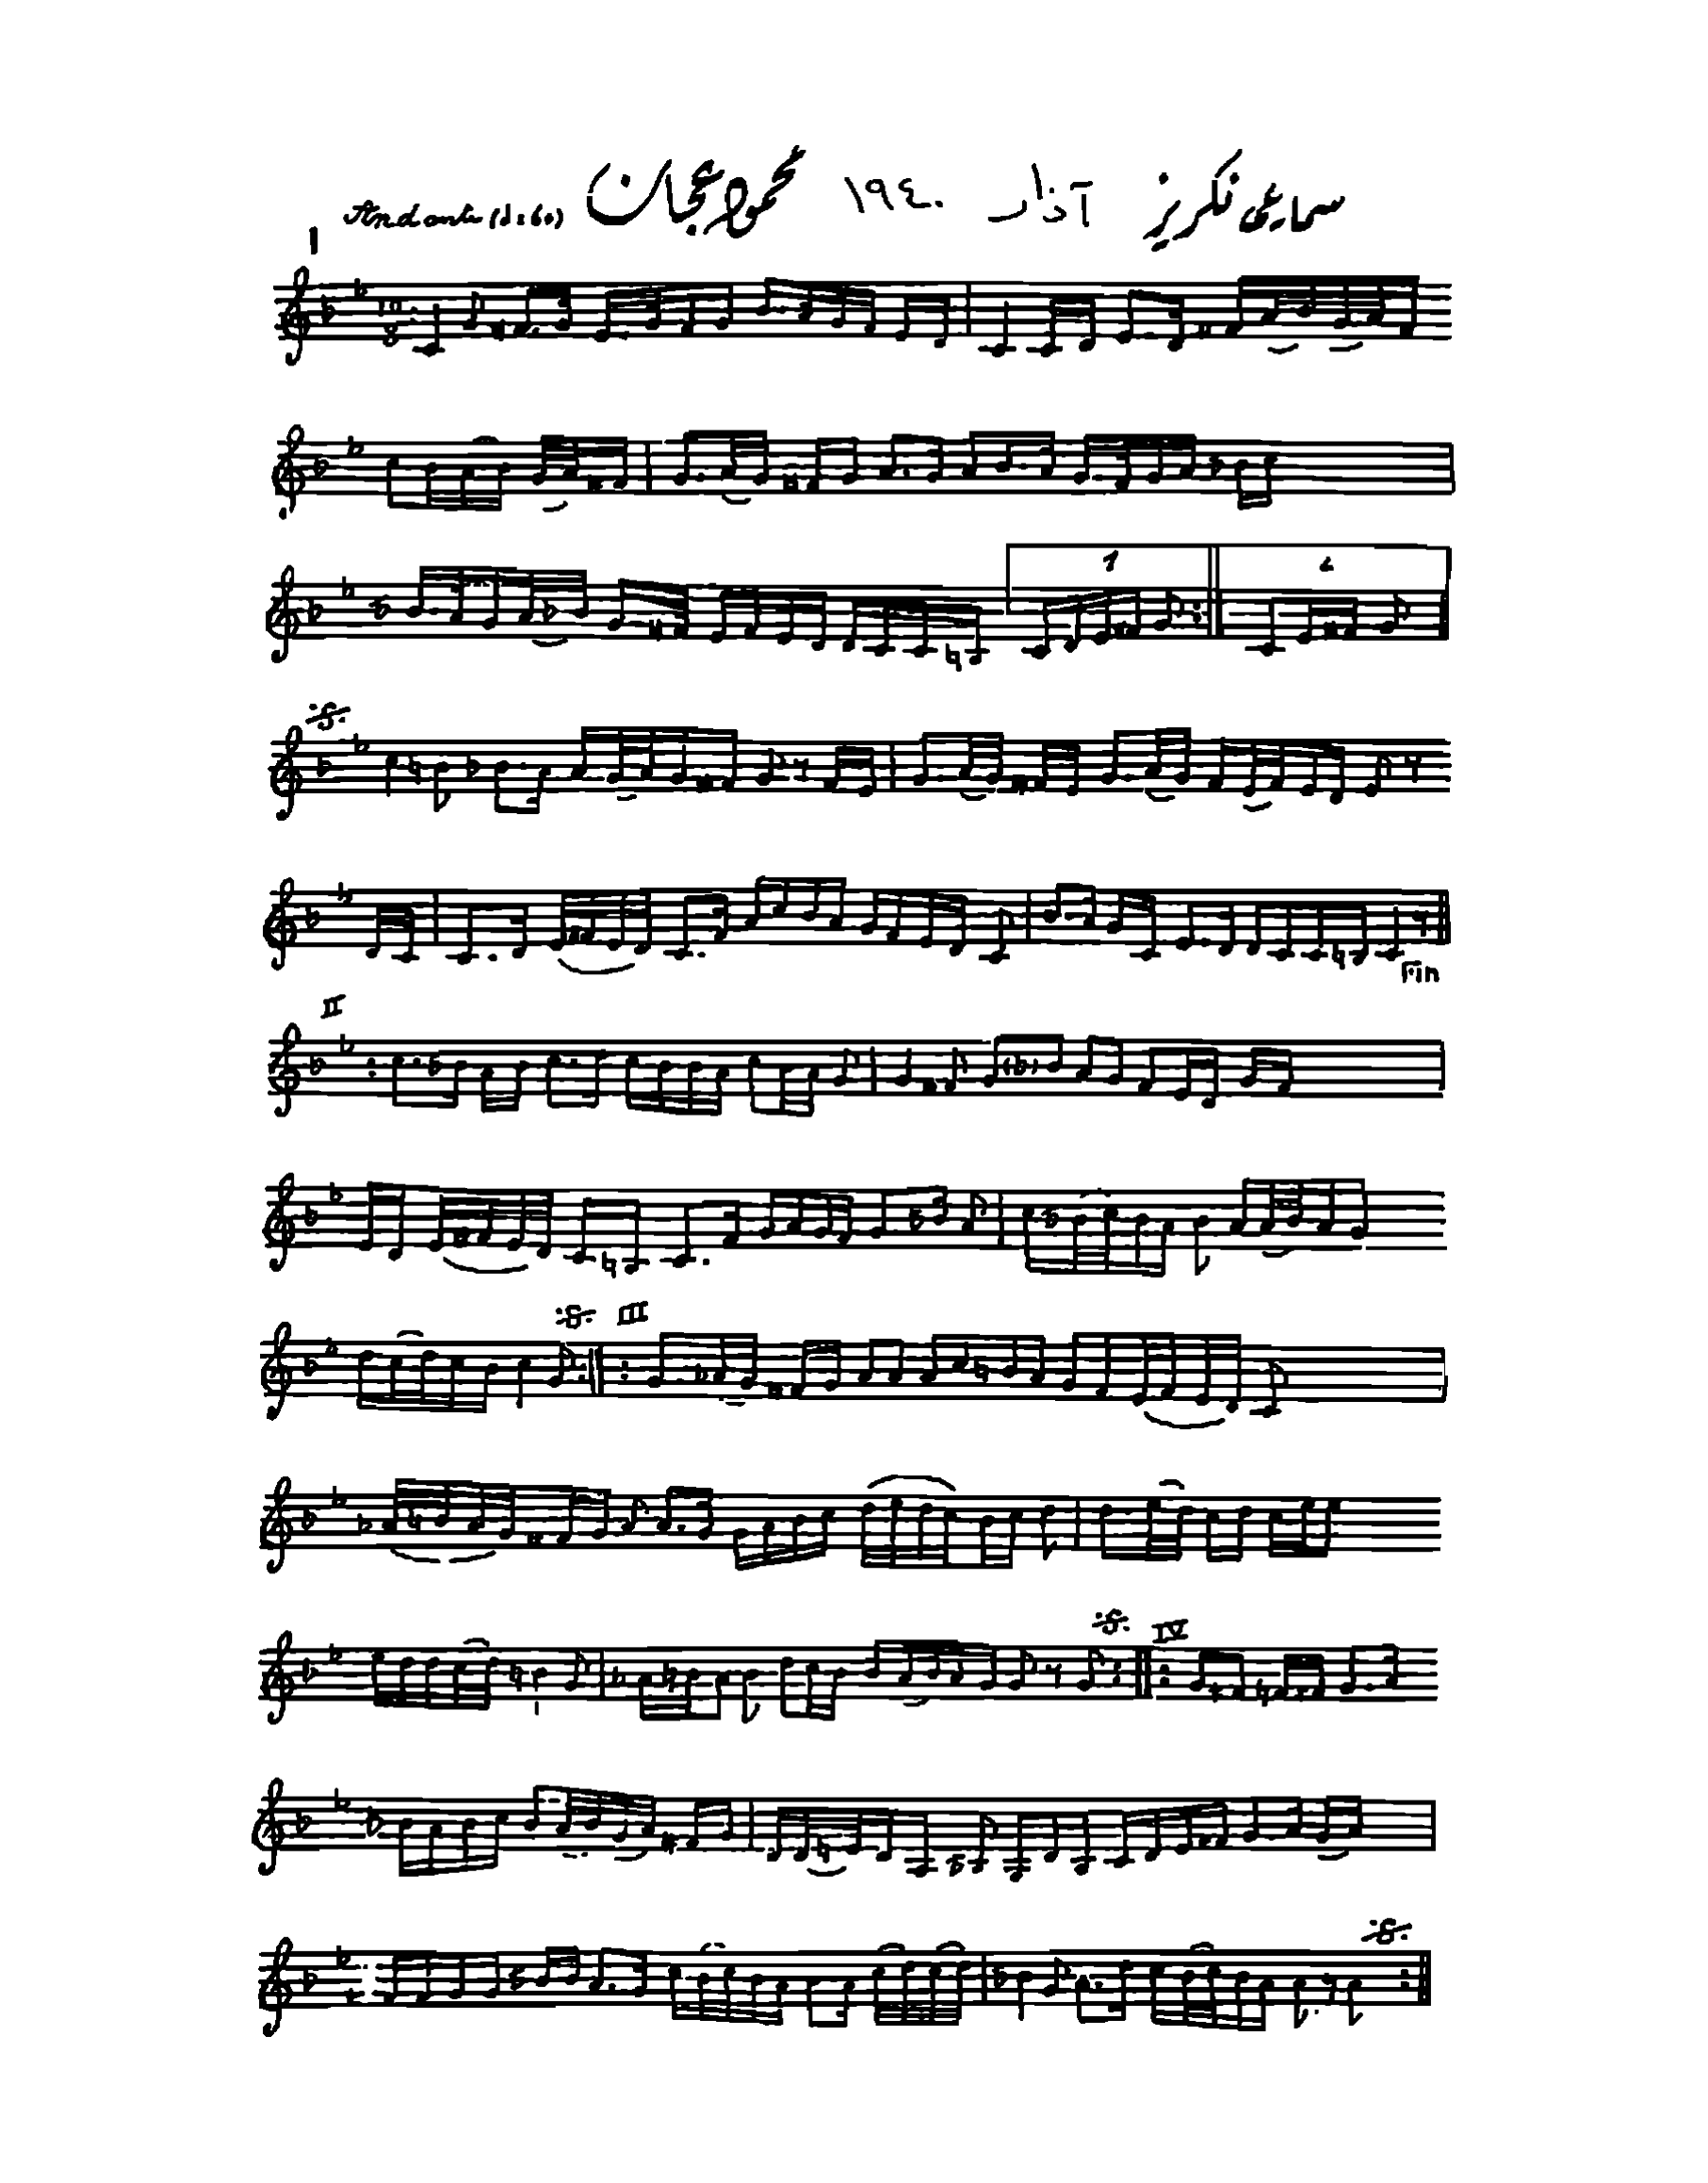 سماعي نكريز آذار ١٩٤٠ محمود عجان
Andante (♩=60)
I
10
8
1 2
Fin
II
III
IV